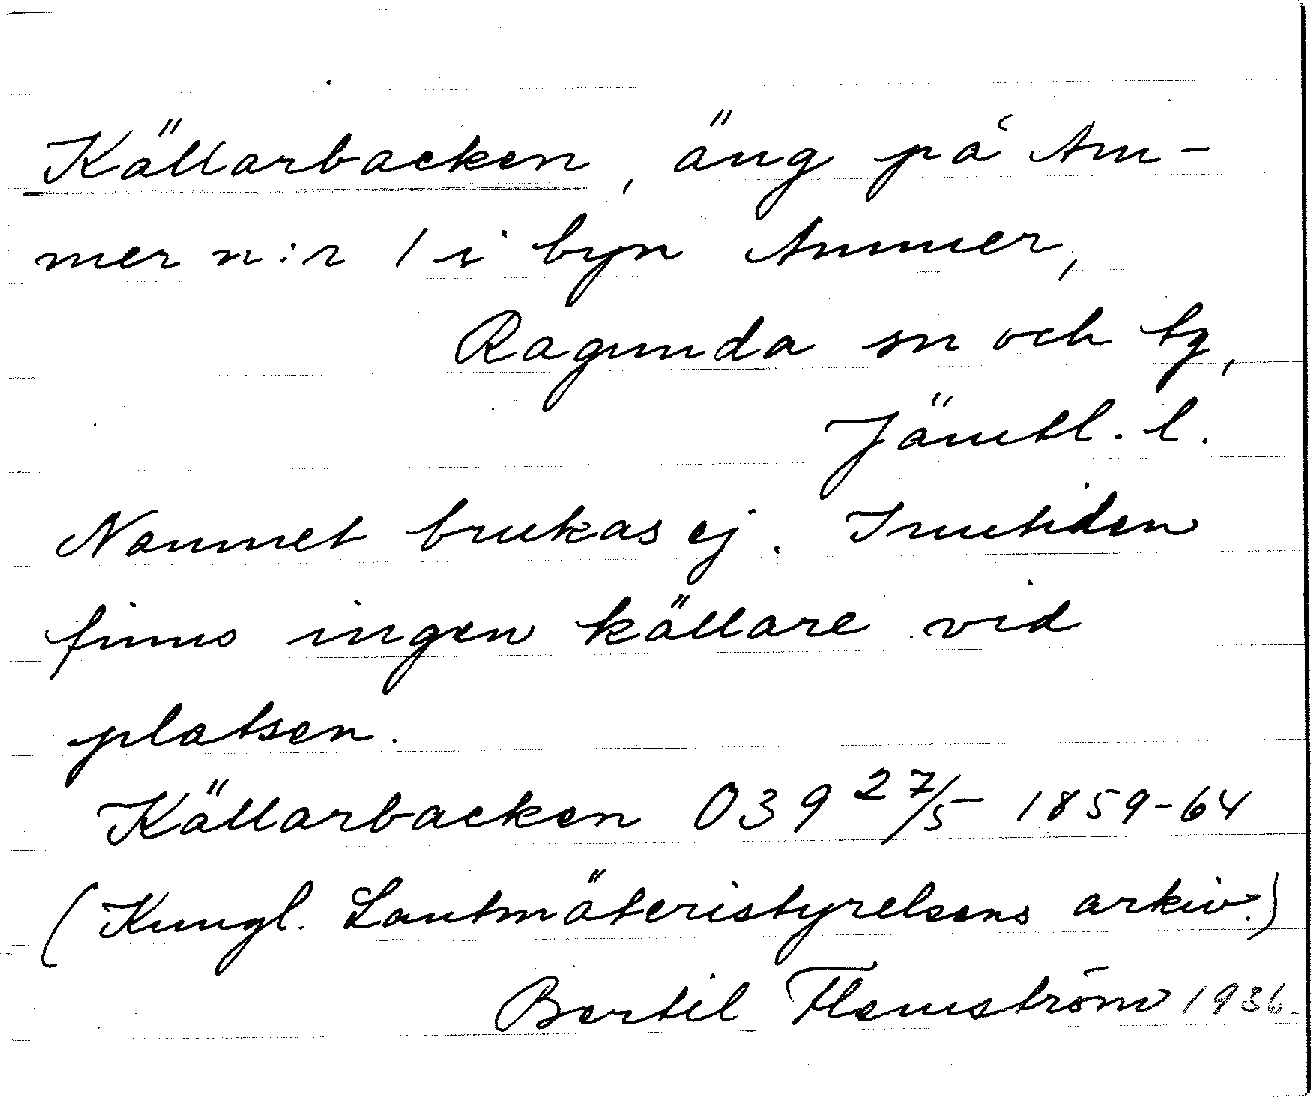 Källarbacken, äng på Am-
mer n:r 1 i byn Ammer,
Ragunda sn och tg,
Jämtl. l.
Namnet brukas ej. Inutiden
finns ingen källare vid
platsen.
Källarbacken 039 27/5 1859-64
(Kungl. Lantmäteristyrelsens arkiv.)
Bertil Flemström 1936.